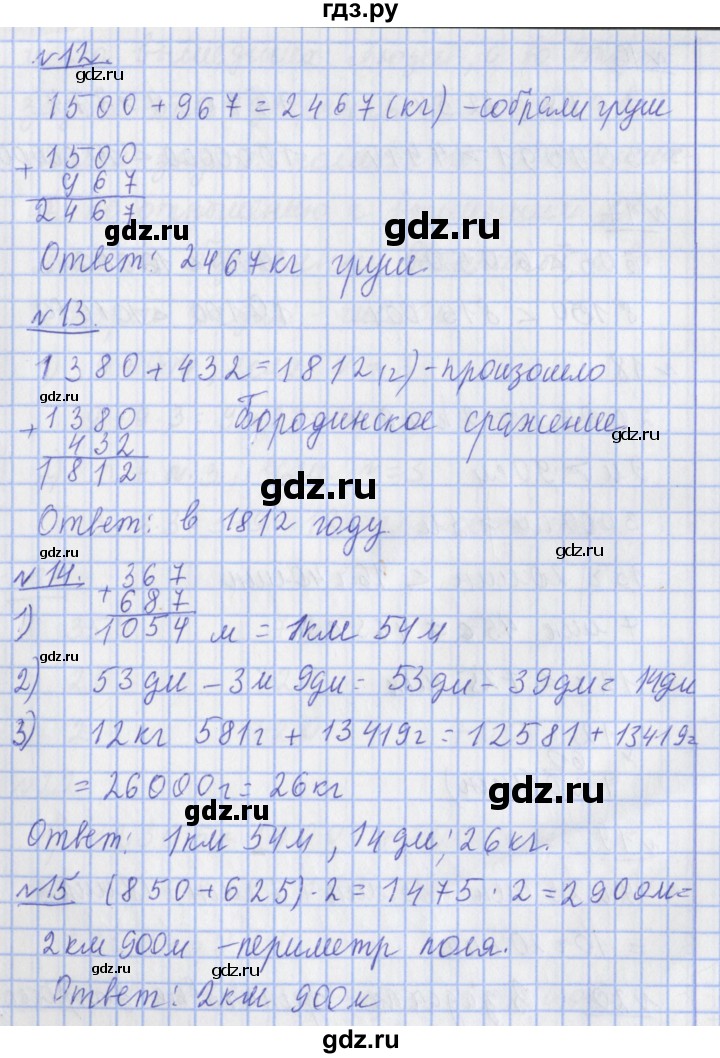 гдз.ру
№12.
gdz.ru
1500 + 967 = 2467 (кг) - собрали груш
+ 1500
967
2467
gdz.ru
gdz.ru
Ответ: 2467кг груш
№13.
1380 + 432 = 1812 (г) - произошло
gdz.ru
+ 1380 Бородинское сражение
432
gdz.ru
1812
gdz.ru
Ответ: в 1812 году
gdz.ru
№14. + 367
687
1) 1054 м = 1км 54м
gdz.ru
2) 53дм - 3м 9дм = 53дм - 39дм = 14дм
3) 12кг 581г + 13419г = 12581 + 13419г
= 26000г = 26кг
gdz.ru
gdz.ru
Ответ: 1км 54м, 14дм; 26кг.
№15 (850 + 625) · 2 = 1475 · 2 = 2900м =
2км 900м - периметр поля.
gdz.ru
gdz.ru
Ответ: 2км 900м
gdz.ru